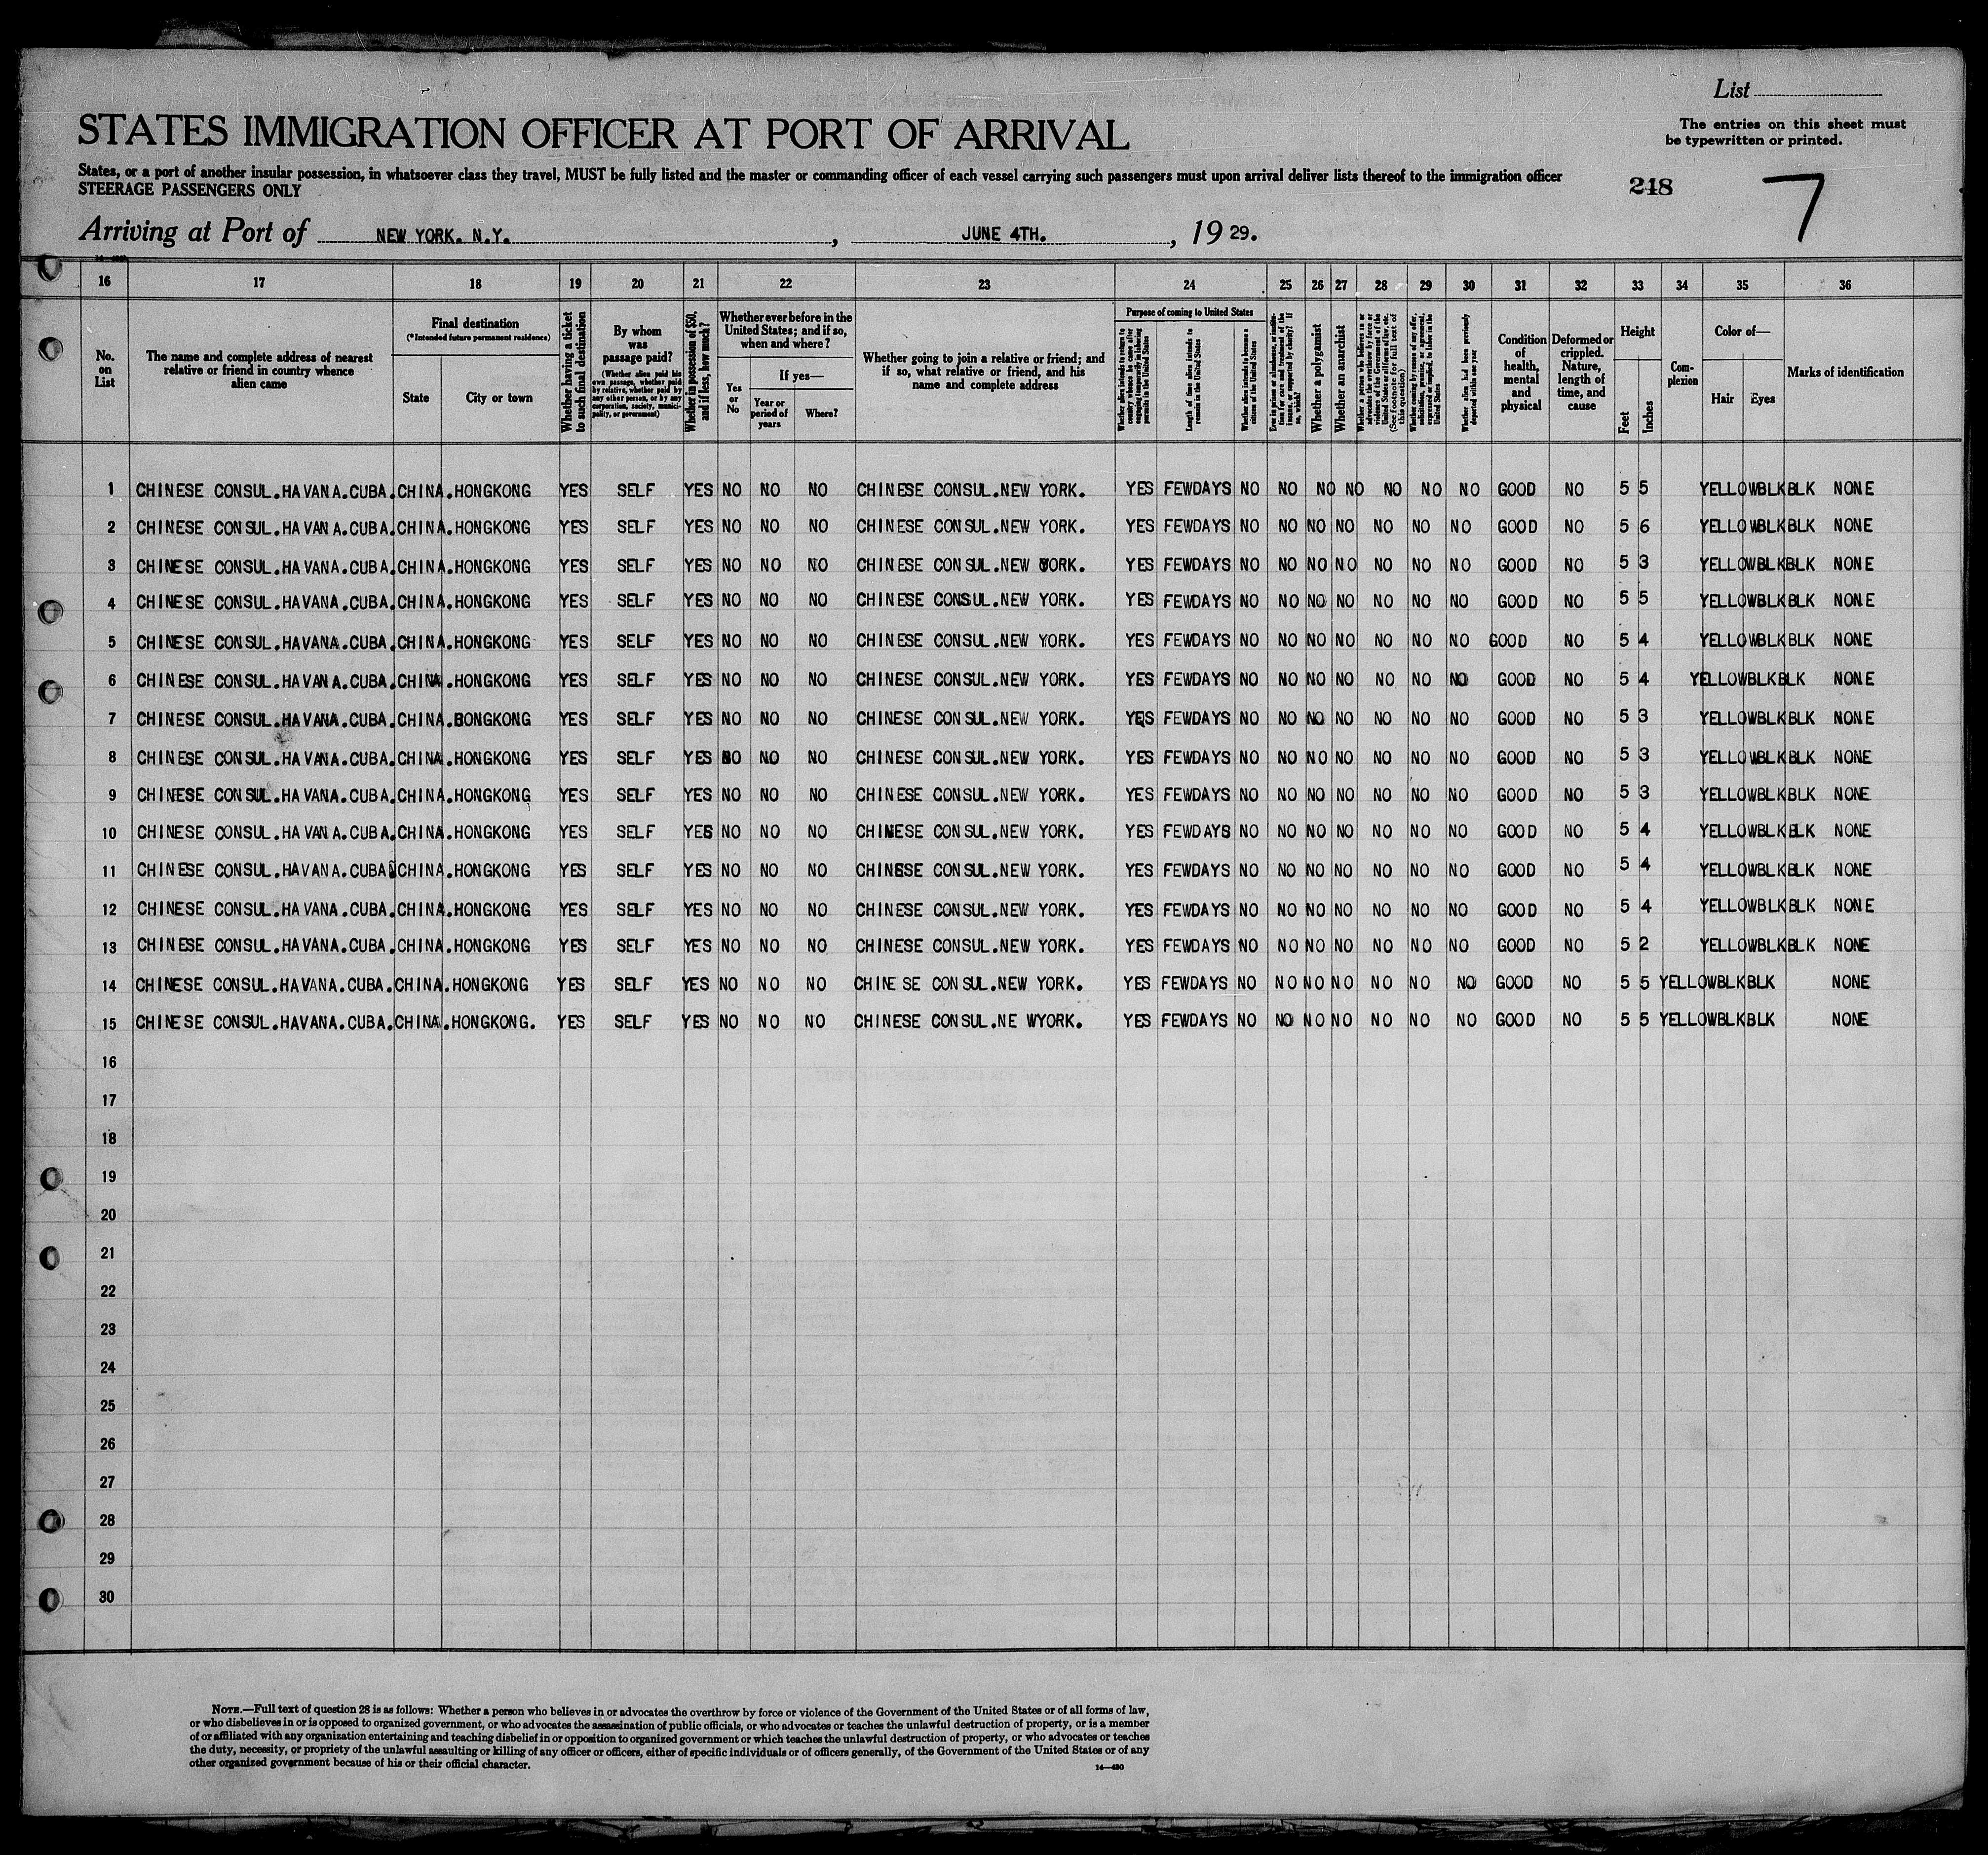 List
The entries on this sheet must
be typewritten or printed.
STATES IMMIGRATION OFFICER AT PORT OF ARRIVAL
States, or a port of another insular possession, in whatsoever class they travel, MUST be fully listed and the master or commanding officer of each vessel carrying such passengers must upon arrival deliver lists thereof to the immigration officer
STEERAGE PASSENGERS ONLY
248 7
Arriving at Port of NEW YORK. N.Y. , JUNE 4TH. , 19 29.
16 17 18 19 20 21 22 23 24 25 26 27 28 29 30 31 32 33 34 35 36
No. on List
The name and complete address of nearest relative or friend in country whence alien came
Final destination
(*Intended future permanent residence)
State City or town
Whether having a ticket to such final destination
By whom was passage paid?
(Whether alien paid his own passage, whether paid by relative, whether paid by any other person, or by any corporation, society, municipality, or government)
Whether in possession of $50, and if less, how much?
Whether ever before in the United States; and if so, when and where?
Yes or No
If yes—
Year or period of years
Where?
Whether going to join a relative or friend; and if so, what relative or friend, and his name and complete address
Purpose of coming to United States
Whether alien intends to return to country whence he came after engaging temporarily in laboring pursuits in the United States
Length of time alien intends to remain in the United States
Whether alien intends to become a citizen of the United States
Whether a polygamist
Whether an anarchist
Whether alien had been previously deported within one year
Condition of health, mental and physical
Deformed or crippled. Nature, length of time, and cause
Height
Feet Inches
Complexion
Color of—
Hair Eyes
Marks of identification
1 CHINESE CONSUL.HAVANA.CUBA.CHINA.HONGKONG YES SELF YES NO NO NO CHINESE CONSUL.NEW YORK. YES FEWDAYS NO NO NO NO NO NO NO GOOD NO 5 5 YELLOWBLKBLK NONE
2 CHINESE CONSUL.HAVANA.CUBA.CHINA.HONGKONG YES SELF YES NO NO NO CHINESE CONSUL.NEW YORK. YES FEWDAYS NO NO NO NO NO NO NO GOOD NO 5 6 YELLOWBLKBLK NONE
3 CHINESE CONSUL.HAVANA.CUBA.CHINA.HONGKONG YES SELF YES NO NO NO CHINESE CONSUL.NEW YORK. YES FEWDAYS NO NO NO NO NO NO NO GOOD NO 5 3 YELLOWBLKBLK NONE
4 CHINESE CONSUL.HAVANA.CUBA.CHINA.HONGKONG YES SELF YES NO NO NO CHINESE CONSUL.NEW YORK. YES FEWDAYS NO NO NO NO NO NO NO GOOD NO 5 5 YELLOWBLKBLK NONE
5 CHINESE CONSUL.HAVANA.CUBA.CHINA.HONGKONG YES SELF YES NO NO NO CHINESE CONSUL.NEW YORK. YES FEWDAYS NO NO NO NO NO NO NO GOOD NO 5 4 YELLOWBLKBLK NONE
6 CHINESE CONSUL.HAVANA.CUBA.CHINA.HONGKONG YES SELF YES NO NO NO CHINESE CONSUL.NEW YORK. YES FEWDAYS NO NO NO NO NO NO NO GOOD NO 5 4 YELLOWBLKBLK NONE
7 CHINESE CONSUL.HAVANA.CUBA.CHINA.BONGKONG YES SELF YES NO NO NO CHINESE CONSUL.NEW YORK. YES FEWDAYS NO NO NO NO NO NO NO GOOD NO 5 3 YELLOWBLKBLK NONE
8 CHINESE CONSUL.HAVANA.CUBA.CHINA.HONGKONG YES SELF YES NO NO NO CHINESE CONSUL.NEW YORK. YES FEWDAYS NO NO NO NO NO NO NO GOOD NO 5 3 YELLOWBLKBLK NONE
9 CHINESE CONSUL.HAVANA.CUBA.CHINA.HONGKONG YES SELF YES NO NO NO CHINESE CONSUL.NEW YORK. YES FEWDAYS NO NO NO NO NO NO NO GOOD NO 5 3 YELLOWBLKBLK NONE
10 CHINESE CONSUL.HAVANA.CUBA.CHINA.HONGKONG YES SELF YES NO NO NO CHINESE CONSUL.NEW YORK. YES FEWDAYS NO NO NO NO NO NO NO GOOD NO 5 4 YELLOWBLKBLK NONE
11 CHINESE CONSUL.HAVANA.CUBA CHINA.HONGKONG YES SELF YES NO NO NO CHINESE CONSUL.NEW YORK. YES FEWDAYS NO NO NO NO NO NO NO GOOD NO 5 4 YELLOWBLKBLK NONE
12 CHINESE CONSUL.HAVANA.CUBA.CHINA.HONGKONG YES SELF YES NO NO NO CHINESE CONSUL.NEW YORK. YES FEWDAYS NO NO NO NO NO NO NO GOOD NO 5 4 YELLOWBLKBLK NONE
13 CHINESE CONSUL.HAVANA.CUBA.CHINA.HONGKONG YES SELF YES NO NO NO CHINESE CONSUL.NEW YORK. YES FEWDAYS NO NO NO NO NO NO NO GOOD NO 5 2 YELLOWBLKBLK NONE
14 CHINESE CONSUL.HAVANA.CUBA.CHINA.HONGKONG YES SELF YES NO NO NO CHINESE CONSUL.NEW YORK. YES FEWDAYS NO NO NO NO NO NO NO GOOD NO 5 5 YELLOWBLKBLK NONE
15 CHINESE CONSUL.HAVANA.CUBA.CHINA.HONGKONG. YES SELF YES NO NO NO CHINESE CONSUL.NE WYORK. YES FEWDAYS NO NO NO NO NO NO NO GOOD NO 5 5 YELLOWBLKBLK NONE
16
17
18
19
20
21
22
23
24
25
26
27
28
29
30
NOTE.—Full text of question 28 is as follows: Whether a person who believes in or advocates the overthrow by force or violence of the Government of the United States or of all forms of law,
or who disbelieves in or is opposed to organized government, or who advocates the assassination of public officials, or who advocates or teaches the unlawful destruction of property, or is a member
of or affiliated with any organization entertaining and teaching disbelief in or opposition to organized government or which teaches the unlawful destruction of property, or who advocates or teaches
the duty, necessity, or propriety of the unlawful assaulting or killing of any officer or officers, either of specific individuals or of officers generally, of the Government of the United States or of any
other organized government because of his or their official character.
14—430